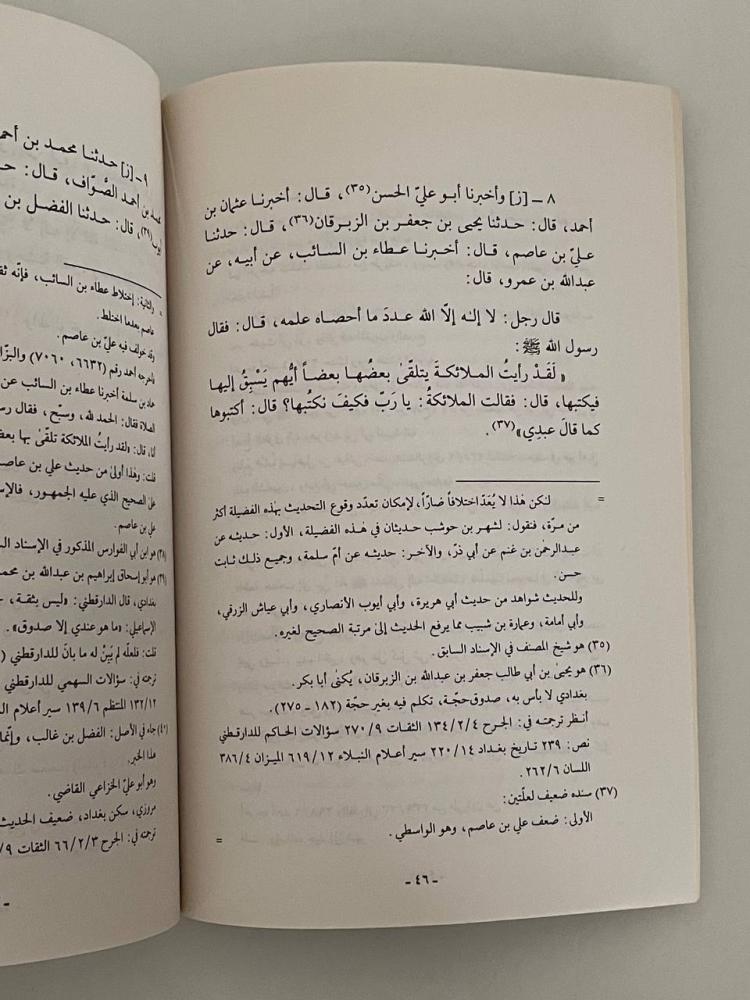 ٨ ــ [ز] وأخبرنا أبو عليّ الحسن(٣٥)، قال: أخبرنا عثمان بن
أحمد، قال: حدثنا يحيى بن جعفر بن الزبرقان(٣٦)، قال: حدثنا
عليّ بن عاصم، قال: أخبرنا عطاء بن السائب، عن أبيه، عن
عبدالله بن عمرو، قال:
قال رجل: لا إله إلّا الله عددَ ما أحصاه علمه، قال: فقال
رسول الله ﷺ:
« لَقَدْ رأيتُ الملائكةَ يتلقىٰ بعضُها بعضاً أيُّهم يَسْبِقُ إليها
فيكتبها، قال: فقالت الملائكةُ: يا رَبِّ فكيفَ نكتُبها؟ قال: أكتبوها
كما قالَ عبدِي»(٣٧).
= لكن هٰذا لا يُعَدّ اختلافاً ضارّاً، لإمكان تعدّد وقوع التحديث بهٰذه الفضيلة أكثر
من مرّة، فنقول: لشهر بن حوشب حديثان في هٰذه الفضيلة، الأول: حديثه عن
عبدالرحمٰن بن غنم عن أبي ذرّ، والآخر: حديثه عن أمّ سلمة، وجميع ذلك ثابت
حسن.
وللحديث شواهد من حديث أبي هريرة، وأبي أيوب الأنصاري، وأبي عياش الزرقي،
وأبي أمامة، وعمارة بن شبيب مما يرفع الحديث إلىٰ مرتبة الصحيح لغيره.
(٣٥) هو شيخ المصنف في الإسناد السابق.
(٣٦) هو يحيىٰ بن أبي طالب جعفر بن عبدالله بن الزبرقان، يُكنىٰ أبا بكر.
بغدادي لا بأس به، صدوق حجّة، تكلم فيه بغير حجّة (١٨٢ ــ ٢٧٥).
أنظر ترجمته في: الجرح ١٣٤/٢/٤ الثقات ٢٧٠/٩ سؤالات الحاكم للدارقطني
نص: ٢٣٩ تاريخ بغداد ٢٢٠/١٤ سير أعلام النبلاء ٦١٩/١٢ الميزان ٣٨٦/٤
اللسان ٢٦٢/٦.
(٣٧) سنده ضعيف لعلّتين:
الأولى: ضعف علي بن عاصم، وهو الواسطي.
=
ــ ٤٦ ــ
٩ ــ [ز] حدثنا محمد بن
بن احمد الصَّوّاف، قال:
قال: حدثنا الفضل بن
= والثانية: إختلاط عطاء بن السائب، فإنّه
عاصم بعدما اختلط.
وقد خولف فيه علي بن عاصم.
أحمد رقم (٦٦٣٢، ٧٠٦٠)
بن سلمة أخبرنا عطاء بن السائب عن
الصلاة فقال: الحمد لله، وسبّح، فقال
أنا، قال: «ولقد رأيتُ الملائكة تلقّىٰ بها
قلت: وهٰذا أولىٰ من حديث علي بن
علىٰ الصحيح الذي عليه الجمهور،
علي بن عاصم.
(٣٨) هو ابن أبي الفوارس المذكور في الإسناد
(٣٩) هو أبو إسحاق إبراهيم بن عبدالله بن
بغدادي، قال الدارقطني: «ليس بثقة،
الإسماعيلي: «ما هو عندي إلا صدوق».
قلت: فلعلّه لم يَبِنْ له ما بانَ للدارقطني
ترجمته في: سؤالات السهمي للدارقطني
١٣٢/١٢ المنتظم ١٣٩/٦ سير أعلام
(٤٠) جاء في الأصل: الفضل بن غالب،
هٰذا الخبر.
وهو أبو عليّ الخزاعي القاضي.
مروزي، سكن بغداد، ضعيف الحديث
ترجمته في: الجرح ٦٦/٢/٣ الثقات